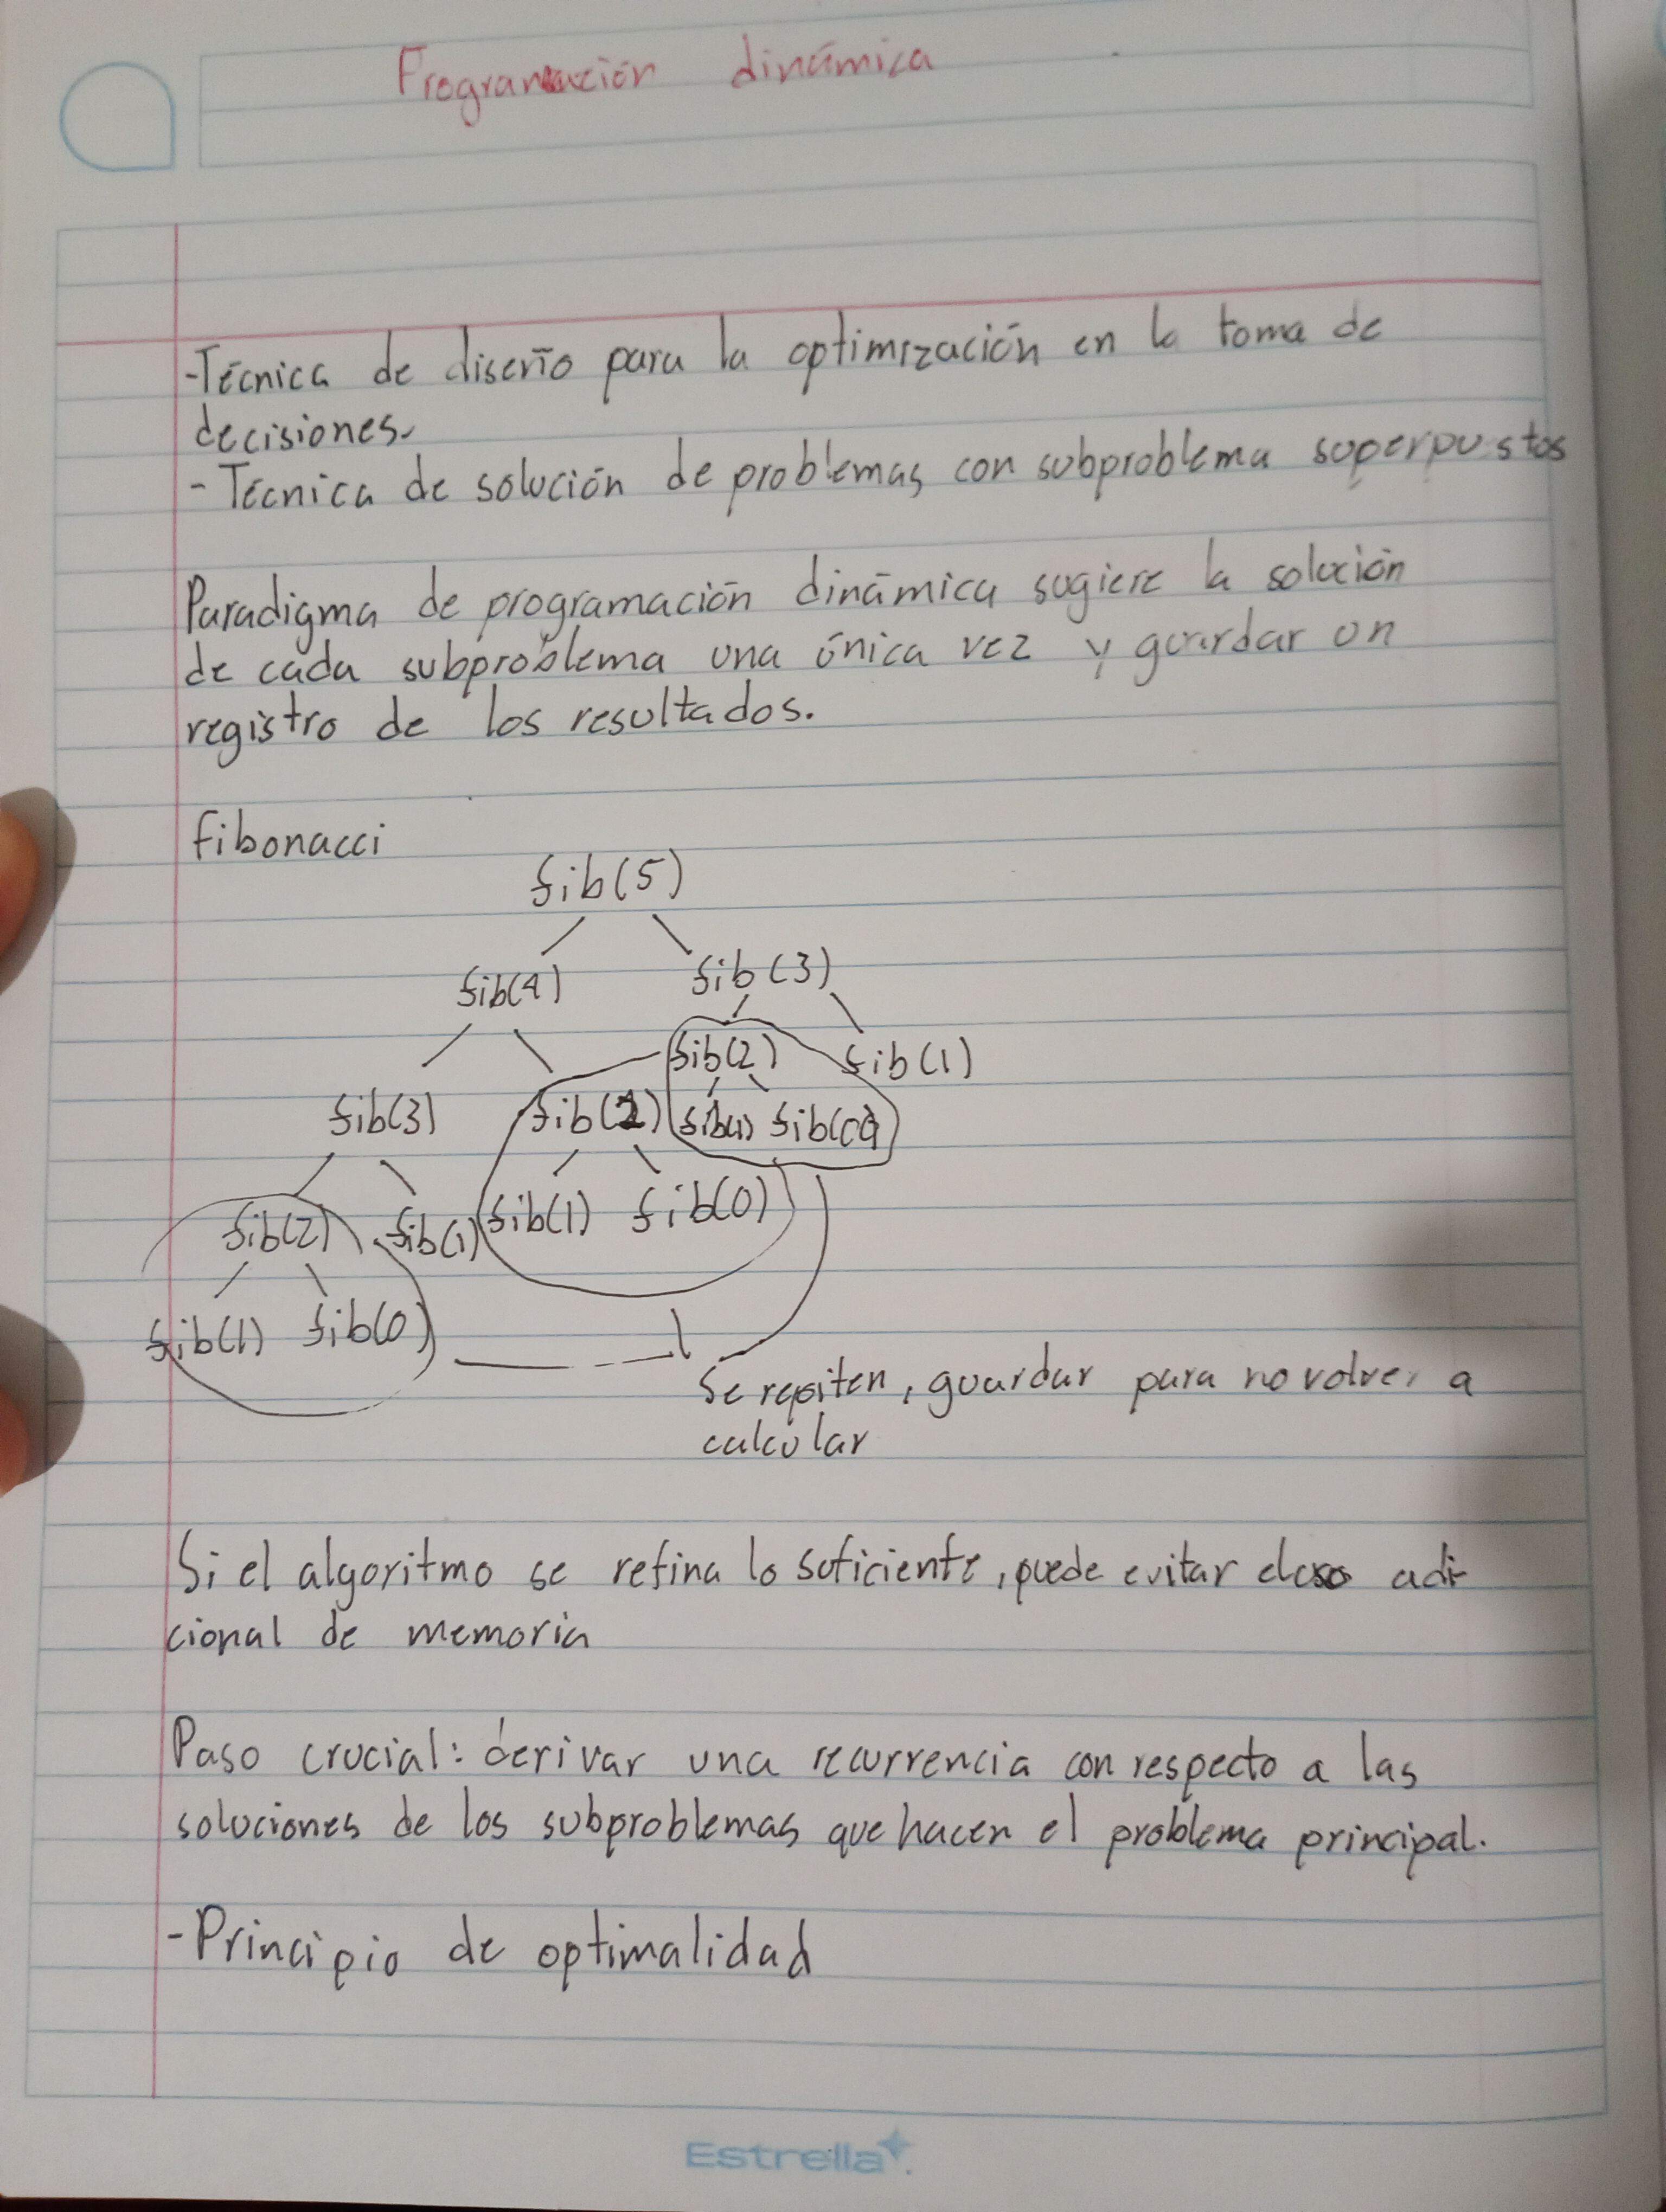 Programación dinámica
-Técnica de diseño para la optimización en la toma de
decisiones.
- Técnica de solución de problemas con subproblema superpustos
Paradigma de programación dinámica sugiere la solución
de cada subproblema una única vez y guardar un
registro de los resultados.
fibonacci
fib(5)
fib(4) fib(3)
fib(2) fib(1)
fib(3) fib(2) fib(1) fib(0)
fib(2) fib(1) fib(1) fib(0)
fib(1) fib(0)
Se repiten, guardar para no volver a
calcular
Si el algoritmo se refina lo suficiente, puede evitar el uso adi-
cional de memoria
Paso crucial: derivar una recurrencia con respecto a las
soluciones de los subproblemas que hacen el problema principal.
-Principio de optimalidad
Estrella